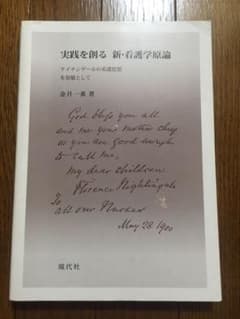 実践を創る 新・看護学原論
ナイチンゲールの看護思想
を基盤として
金井一薫 著
God bless you all
and me your mother chief
as you are good enough
to call me,
my dear children
Florence Nightingale
To
all our Nurses
May 28 1900
現代社